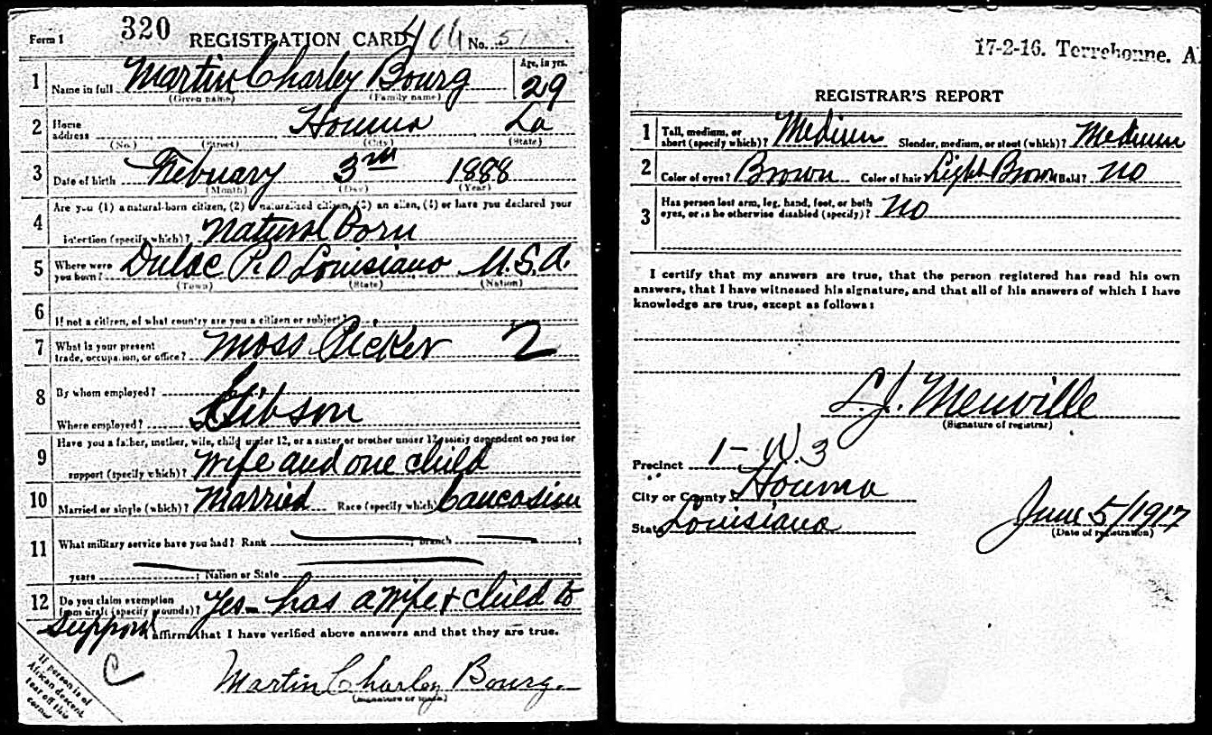 Form 1 320 REGISTRATION CARD No. 51
1 Name in full Martin Charley Bourg Age, in yrs. 29
(Given name) (Family name)
2 Home address Houma La
(No.) (Street) (City) (State)
3 Date of birth Febuary 3rd 1888
(Month) (Day) (Year)
4 Are you (1) a natural-born citizen, (2) a naturalized citizen, (3) an alien, (4) or have you declared your
intention (specify which)? Natural Born
5 Where were you born? Dulac P.O Louisiana U.S.A.
(Town) (State) (Nation)
6 If not a citizen, of what country are you a citizen or subject?
7 What is your present trade, occupation, or office? Moss Picker 2
8 By whom employed?
Where employed? Gibson
9 Have you a father, mother, wife, child under 12, or a sister or brother under 12, solely dependent on you for
support (specify which)? Wife and one child
10 Married or single (which)? Married Race (specify which) Caucasian
11 What military service have you had? Rank ; branch ;
years ; Nation or State
12 Do you claim exemption from draft (specify grounds)? Yes - has a wife & child to
support
affirm that I have verified above answers and that they are true.
C Martin Charley Bourg.
If person is of
African descent
tear off this
corner
17-2-16. Terrebonne. A
REGISTRAR'S REPORT
1 Tall, medium, or short (specify which)? Medium Slender, medium, or stout (which)? Medium
2 Color of eyes? Brown Color of hair Light Brown Bald? no
3 Has person lost arm, leg, hand, foot, or both eyes, or is he otherwise disabled (specify)? No
I certify that my answers are true, that the person registered has read his own
answers, that I have witnessed his signature, and that all of his answers of which I have
knowledge are true, except as follows:
L.J. Menville
(Signature of registrar)
Precinct 1- W.3
City or County Houma
State Louisiana
June 5/1917
(Date of registration)